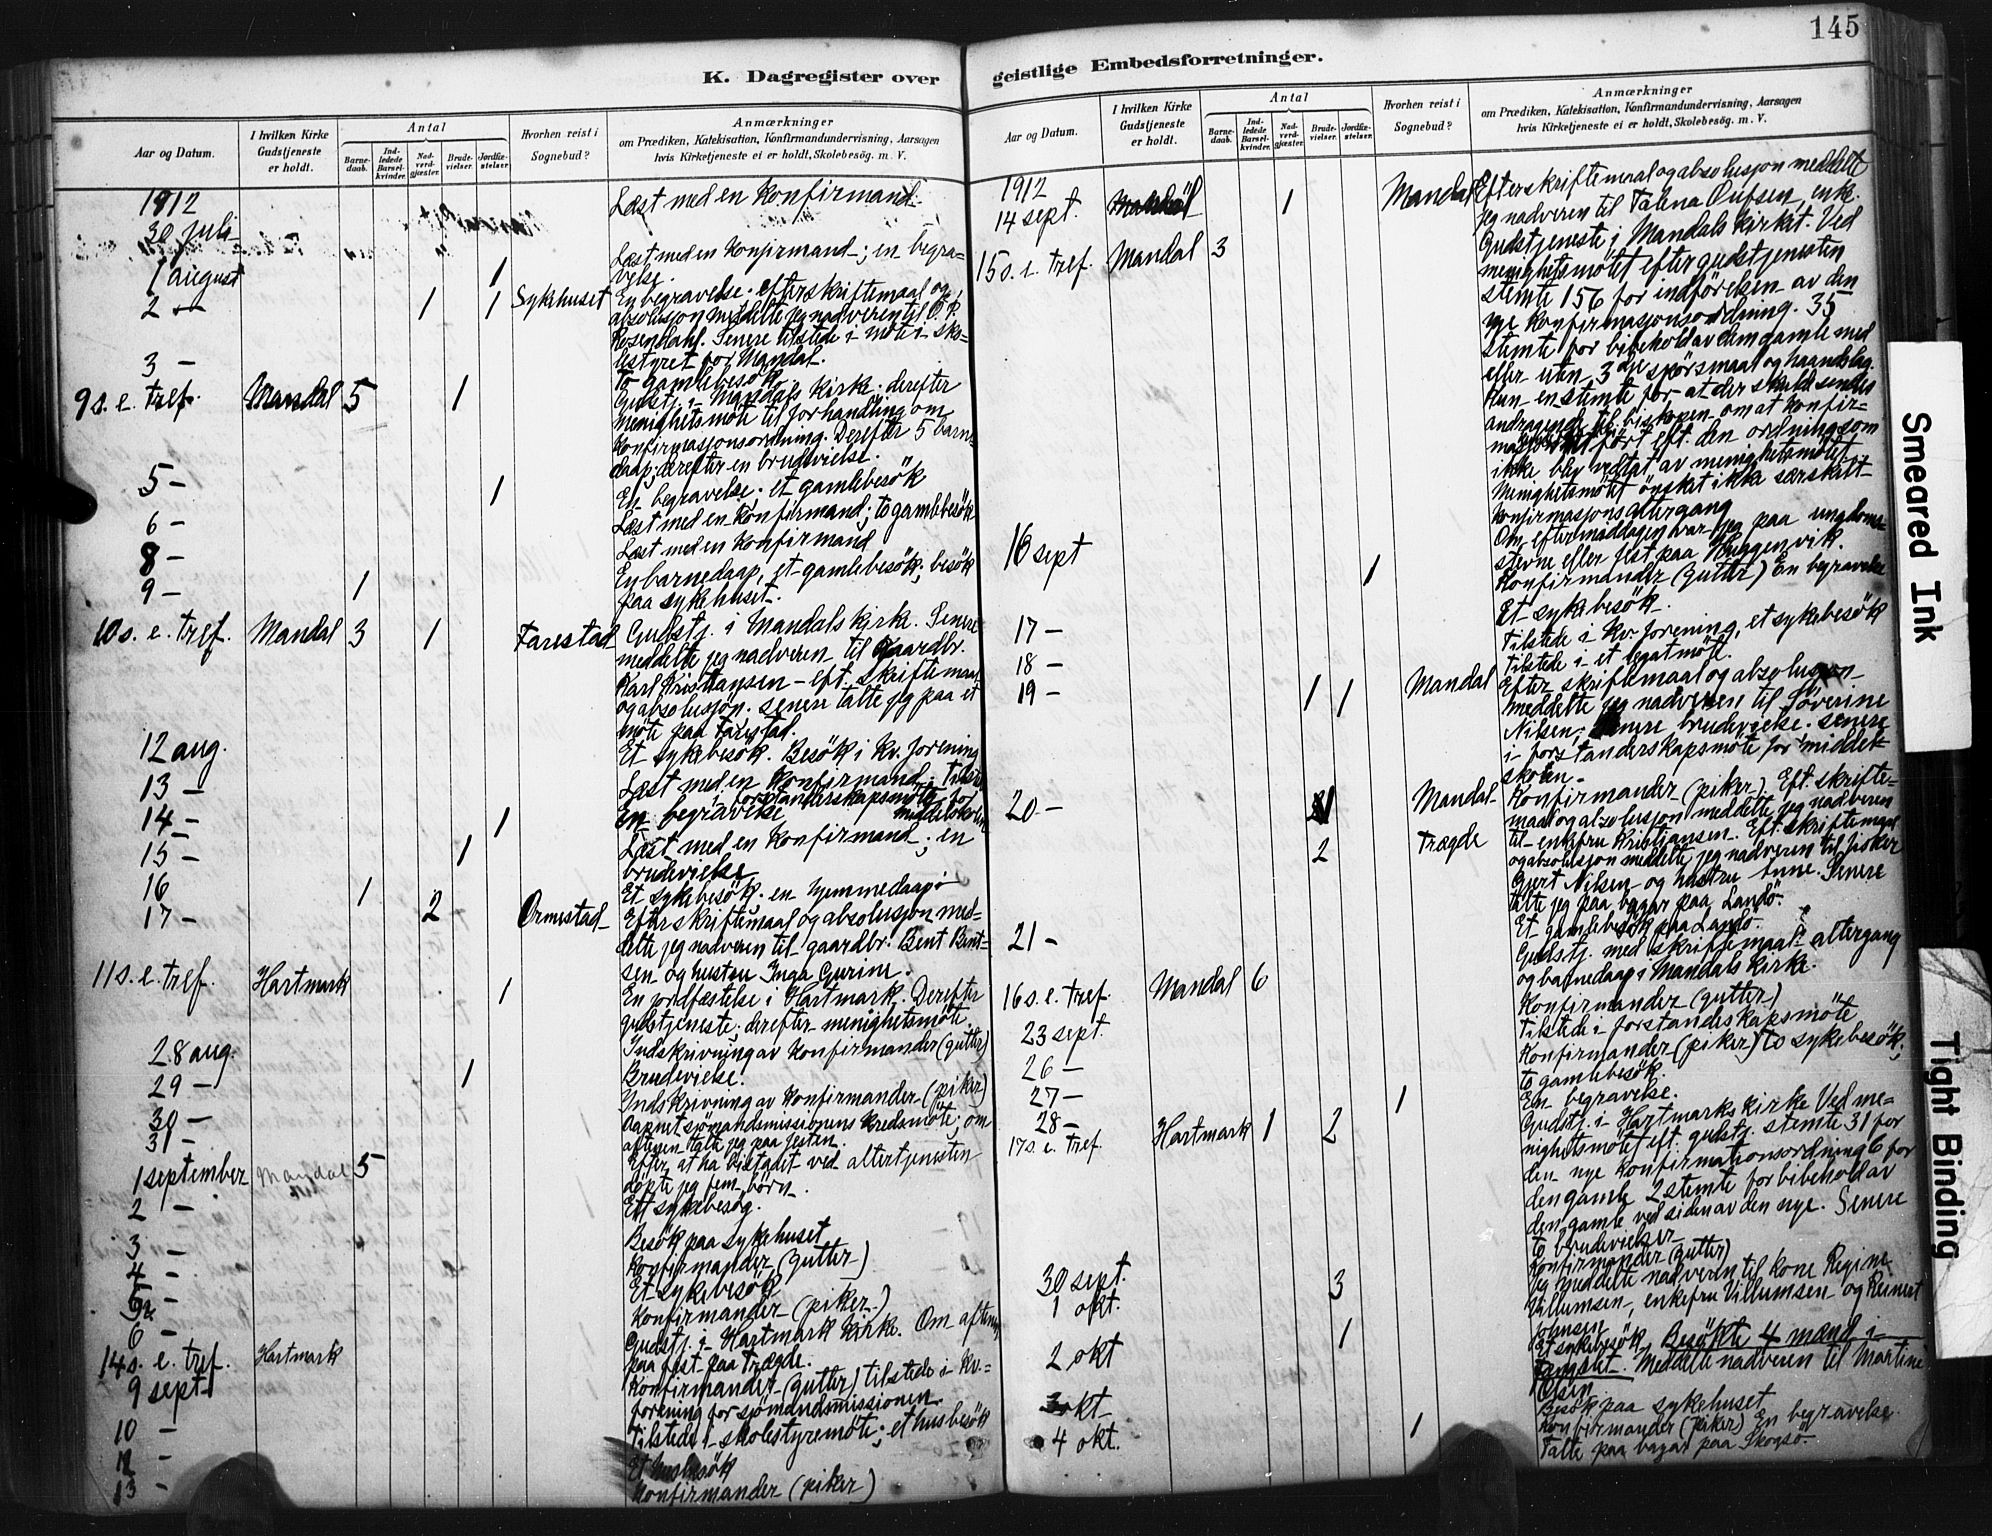 145
K. Dagregister over
geistlige Embedsforretninger.
Aar og Datum.
I hvilken Kirke Gudstjeneste er holdt.
Antal
Barne-daab.
Ind-ledede Barsel-kvinder.
Nad-verd-gjæster.
Brude-vielser.
Jordfæ-stelser.
Hvorhen reist i Sognebud?
Anmærkninger
om Prædiken, Katekisation, Konfirmandundervisning, Aarsagen
hvis Kirketjeneste ei er holdt, Skolebesøg. m. V.
1912
30 juli Læst med en konfirmand
Læst med en konfirmand; en begra=
1 august 1 velse.
2 — 1 1 Sykehuset En begravelse. efter skriftemaal og
absolusjon meddelte jeg nadveren til O. P.
Rosendahl. Senere tilstede i møte i sko=
lestyret for Mandal.
3 — To gamlebesök
9 s. e. tref. Mandal 5 1 Gudstj. i Mandals kirke. derefter
menighetsmöte til forhandling om
konfirmasjonsordning. Derefter 5 barne
daap; derefter en brudevielse.
5 — 1 En begravelse; et gamlebesök
6 — Læst med en konfirmand; to gamlebesök
8 — Læst med en konfirmand
9 — 1 En barnedaap, et gamlebesök, besök
paa sykehuset.
10 s. e. tref. Mandal 3 1 Farestad Gudstj. i Mandals kirke. Senere
meddelte jeg nadveren til gaardbr.
Karl Kristiansen – eft. skriftemaal
og absolusjon. senere talte jeg paa et
möte paa Farestad.
12 aug. Et sykebesök. Besök i kv. forening
13 — Læst med en konfirmand;
i forstanderskapsmöte for
14 — 1 En begravelse middelskolen
15 — 1 Læst med en konfirmand; en
brudevielse
16 1 Et sykebesök. en hjemmedaap
17 — 2 Ormestad Efter skriftemaal og absolusjon med=
delte jeg nadveren til gaardbr. Bent Bent=
sen og hustru Inga Gurine.
11 s. e. tref. Hartmark 1 En jordfæstelse i Hartmark. Derefter
gudstjeneste. derefter menighetsmöte.
28 aug. Indskrivning av konfirmander (gutter)
29 — 1 Brudevielse.
30 — Indskrivning av konfirmander (piker)
31 — Aapnet sjömandsmissionens kredsmöte; om
aftenen talte jeg paa festen.
1 september Mandal 5 Efter at ha bistaaet ved altertjenesten
döpte jeg fem börn.
2 — Ett sykebesög.
3 — Besök paa sykehuset
4 — Konfirmander (gutter)
5 — Et sykebesök
6 — Konfirmander (piker)
14 s. e. tref. Hartmark Gudstj. i Hartmark kirke. Om aftenen
paa fest paa Trægde.
9 sept Konfirmander (gutter) tilstede i kv=
forening for sjömandsmissionen
10 — Tilstede i skolestyremöte; et husbesök
12 — Et husbesök
13 — Konfirmander (piker)
1912
14 sept. 1 Mandal Efter skriftemaal og absolusjon meddelte
jeg nadveren til Talena Olufsen, enke.
15 s. e. tref. Mandal 3 Gudstjeneste i Mandals kirke. Ved
menighetsmötet efter gudstjenesten
stemte 156 for indförelsen av den
nye konfirmasjonsordning. 35
stemte for bibehold av den gamle med
eller uten 3dje spörsmaal og haandslag.
Kun en stemte for at der skulde sendes
andragende til biskopen om at konfir=
masjon fört eft. den ordning som
ikke blev vedtat av menighetsmötet.
Menighetsmötet önsket ikke særskilt
konfirmasjonsaltergang
Om eftermiddagen var jeg paa ungdoms=
stevne eller fest paa
16 sept 1 Konfirmander (gutter) En begravelse
Et sykebesök.
17 — Tilstede i kv. forening, et sykebesök
18 — Tilstede i et legatmöte.
19 — 1 1 Mandal Efter skriftemaal og absolusjon
meddelte jeg nadveren til Söverine
Nilsen; senere brudevielse. senere
i forstanderskapsmöte for middel=
skolen.
20 — 1 Mandal Konfirmander (piker). Eft. skrifte=
maal og absolusjon meddelte jeg nadveren
2 Trægde til enkefru Kristiansen. Eft. skriftemaal
og absolusjon meddelte jeg nadveren til fisker
Gjert Nilsen og hustru Anne. Senere
talte jeg paa bazar paa Landö.
21 — Et gamlebesök paa Landö.
16 s. e. tref. Mandal 6 Gudstj. med skriftemaal altergang
og barnedaap i Mandals kirke.
23 sept. Konfirmander (gutter)
26 — Tilstede i forstanderskapsmöte
27 — Konfirmander (piker) to sykebesök;
to gamlebesök.
28 — 1 En begravelse.
17 s. e. tref Hartmark 1 2 Gudstj. i Hartmarks kirke Ved me=
nighetsmötet eft. gudstj. stemte 31 for
den nye konfirmationsordning 6 for
den gamle 2 stemte for bibehold av
den gamle ved siden av den nye. Senere
to brudevielser
30 sept. Konfirmander (gutter)
1 okt. 3 Jeg meddelte nadveren til kone Regine
Villumsen, enkefru Villumsen og Reinert
Johnsen
2 okt 1 Et sykebesök. Besökte 4 mænd i
fængslet. Meddelte nadveren til Martine
Olsen
3 okt Besök paa sykehuset
4 okt. 1 Konfirmander (piker) En begravelse.
Talte paa bazar paa Skogsö.
Smeared Ink
Tight Binding